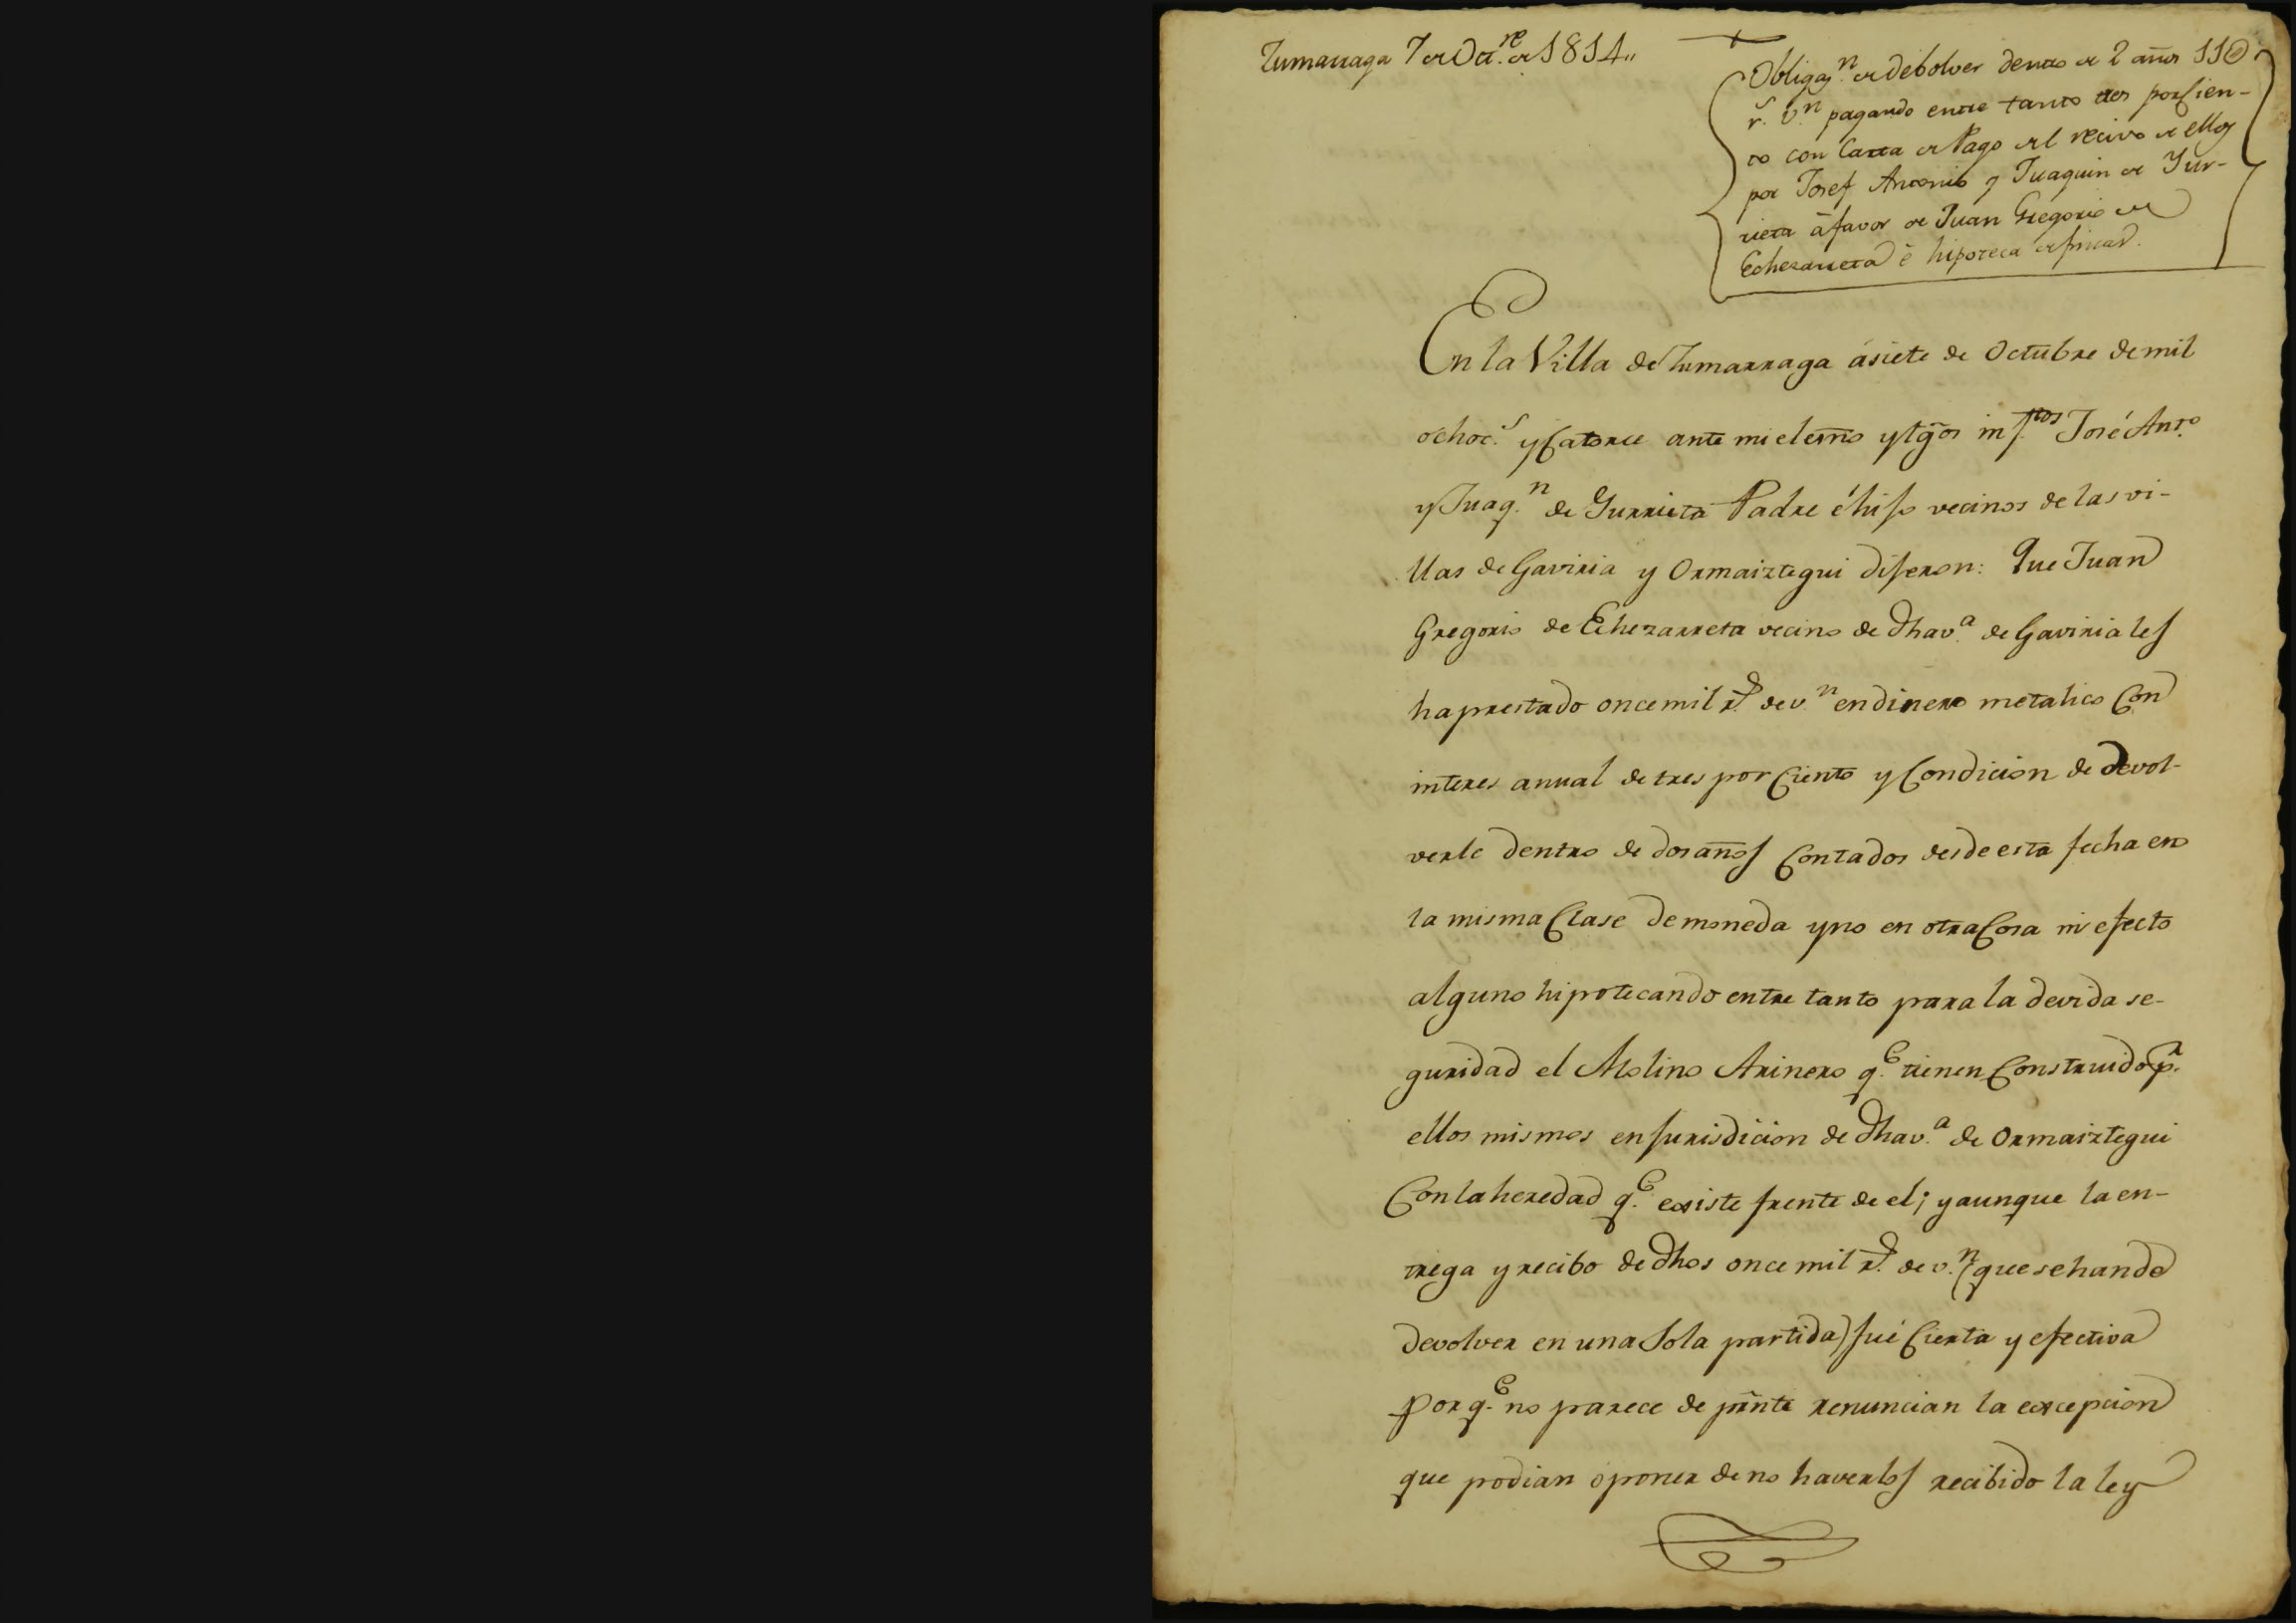 Zumarraga 7 de Oct.re de 1814,,
Obligaz.n de debolver dentro de 2 años 11@
r.s v.n pagando entre tanto tres porcien-
to con Carta de Pago del recivo de ellos
por Josef Antonio y Juaquin de Yur-
rieta â favor de Juan Gregorio de
Echezarreta é hipoteca de fincas.
En la Villa de Zumarraga ásiete de Octubre demil
ochoc.s y Catorce ante mi el esno y tgos inf.tos José Ant.o
y Juaq.n de Yurrieta Padre é hijo vecinos de las vi-
llas de Gaviria y Ormaiztegui dijeron: Que Juan
Gregorio de Echezarreta vecino de dha v.a de Gaviria les
ha prestado once mil r.s de v.n en dinero metalico Con
interes anual de tres por Ciento y Condicion de devol-
verle dentro de dos años Contados desde esta fecha en
la misma Clase de moneda y no en otra Cosa ni efecto
alguno hipotecando entre tanto para la devida se-
guridad el Molino Arinero q.e tienen Construido p.r
ellos mismos en jurisdicion de dha v.a de Ormaiztegui
Con la heredad q.e existe frente de el; y aunque la en-
trega y recibo de dhos once mil r.s de v.n (que se han de
devolver en una Sola partida) fué Cierta y efectiva
por q.e no parece de pnte renuncian la excepcion
que podian oponer de no haverlos recibido la ley